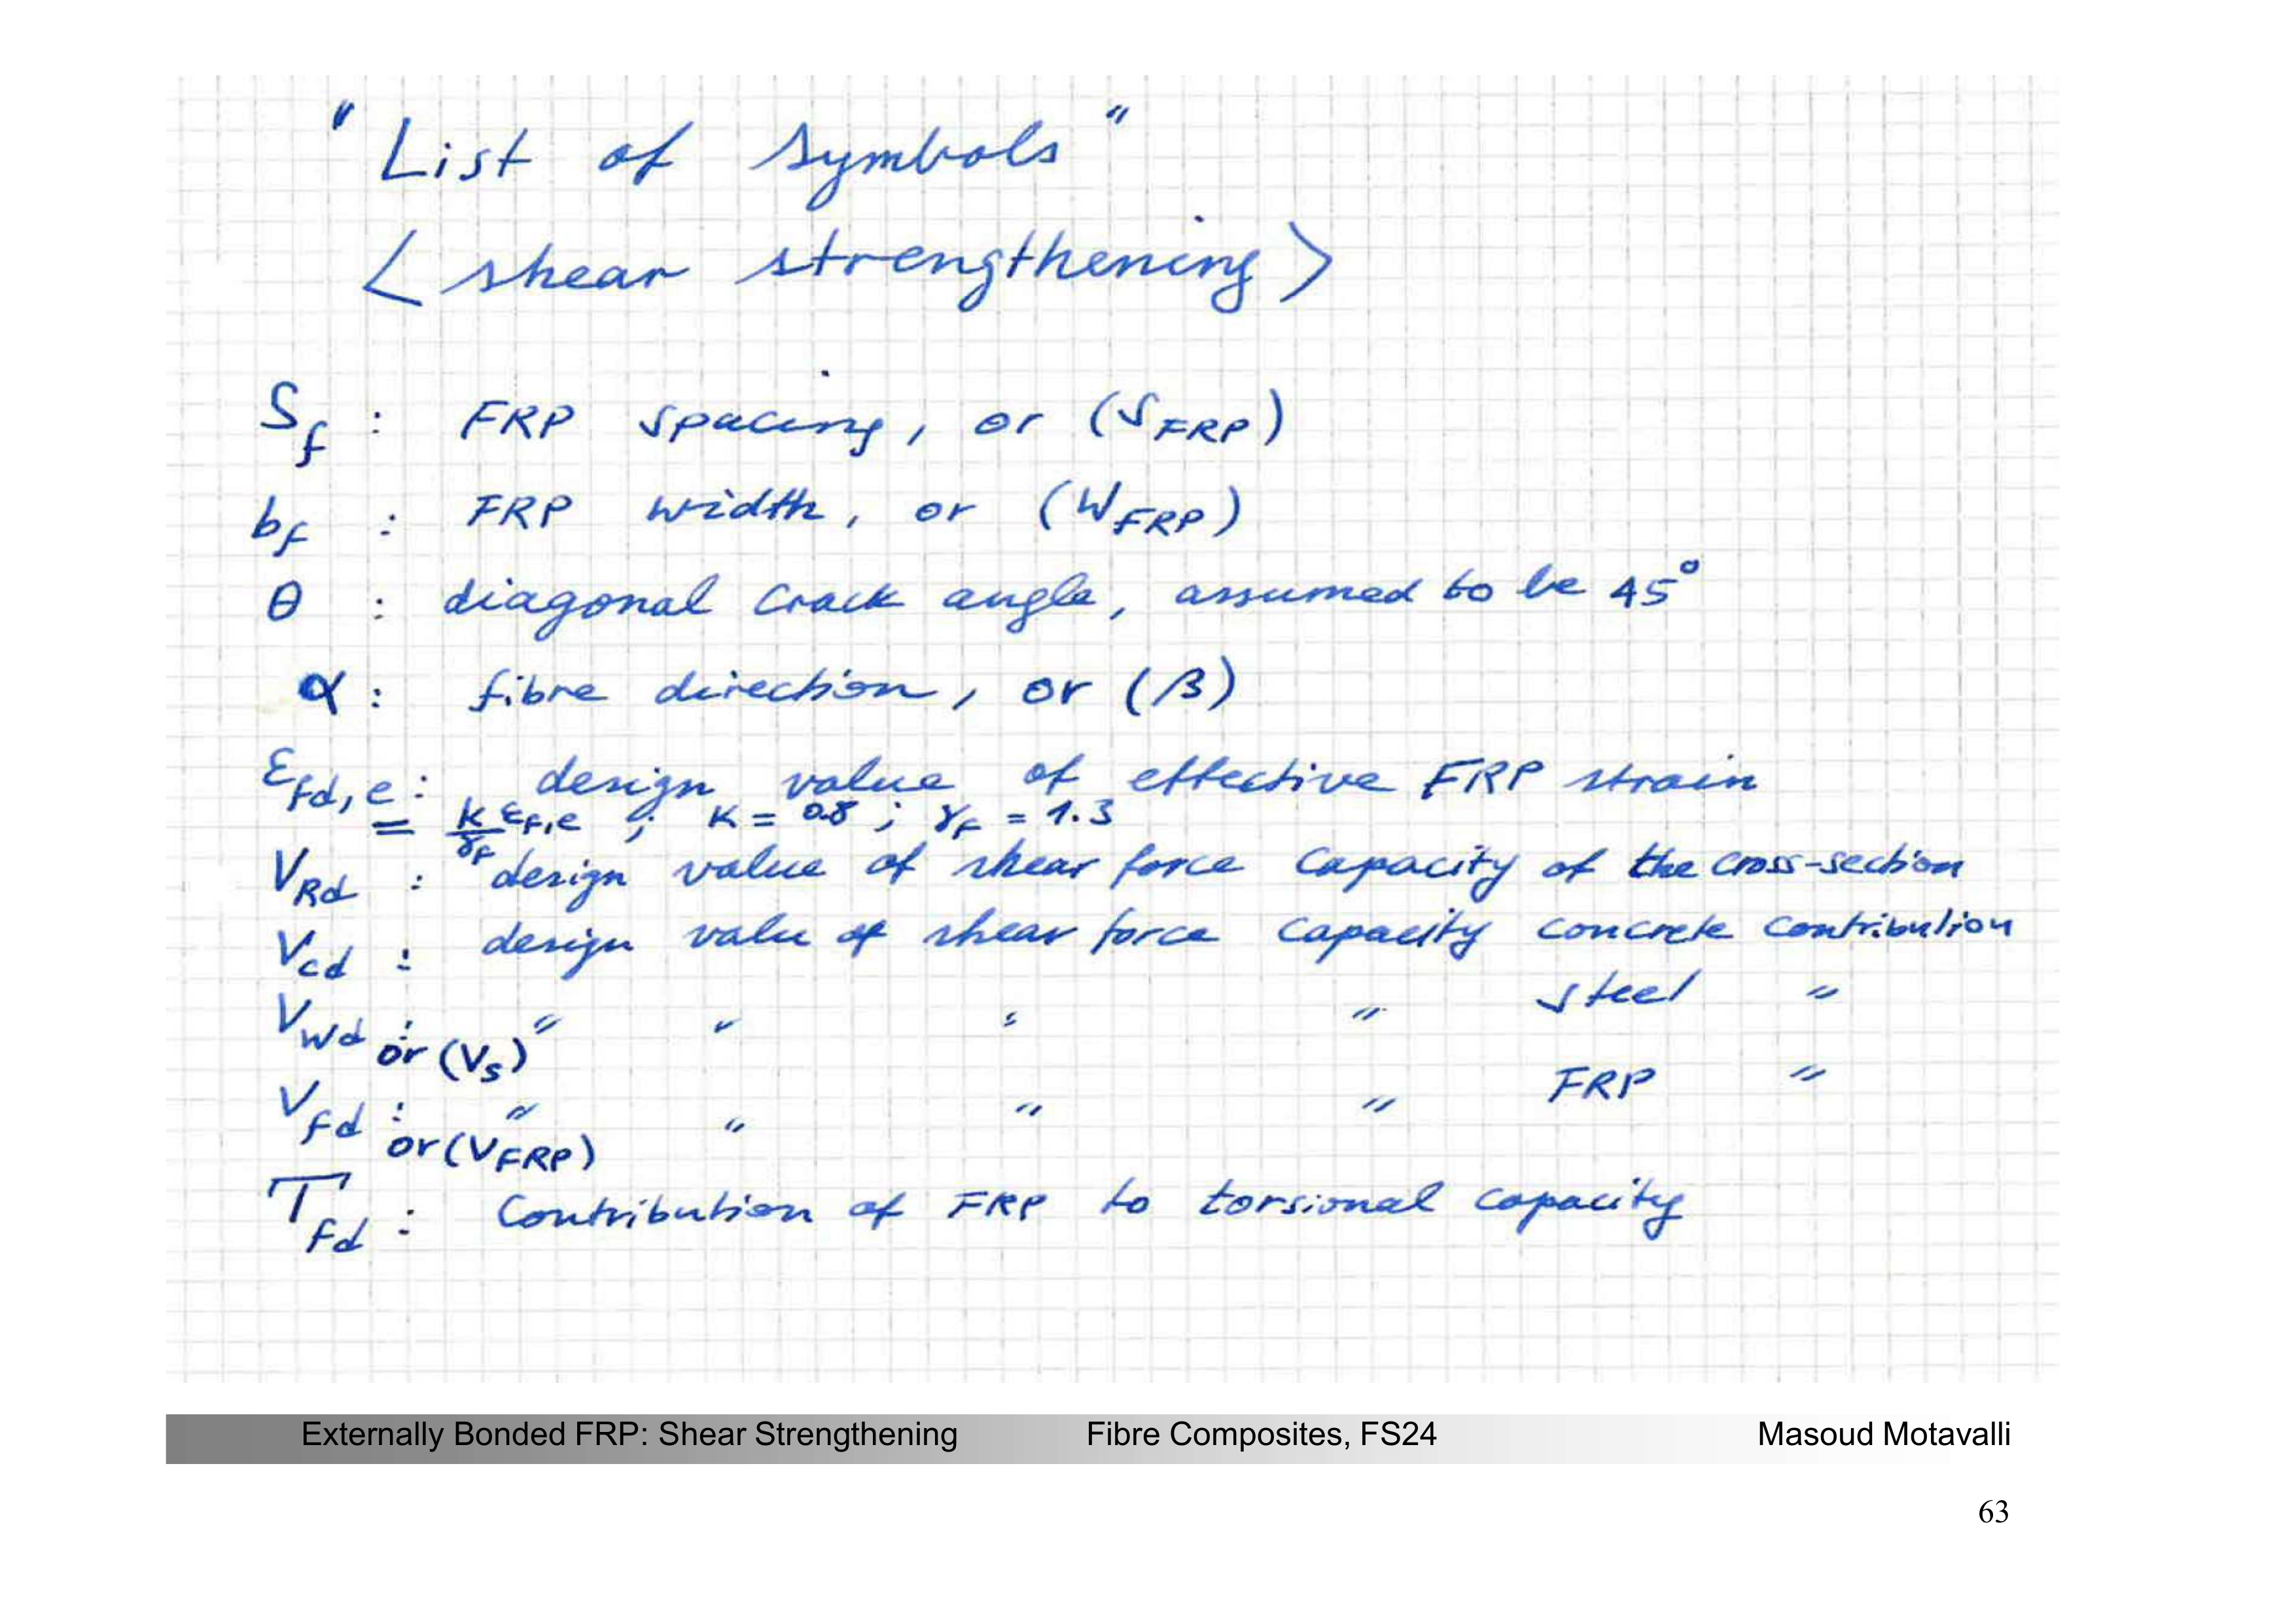 "List of symbols"
< shear strengthening >
Sf : FRP spacing, or (SFRP)
bf : FRP width, or (WFRP)
θ : diagonal crack angle, assumed to be 45°
α : fibre direction, or (β)
εfd,e : design value of effective FRP strain
= k/γf εf,e ; K = 0.8 ; γf = 1.3
VRd : design value of shear force capacity of the cross-section
Vcd : design valu of shear force capacity concrete contribution
Vwd : " " " " steel "
or (Vs)
Vfd : " " " " FRP "
or (VFRP)
Tfd : Contribution of FRP to torsional capacity
Externally Bonded FRP: Shear Strengthening Fibre Composites, FS24 Masoud Motavalli
63